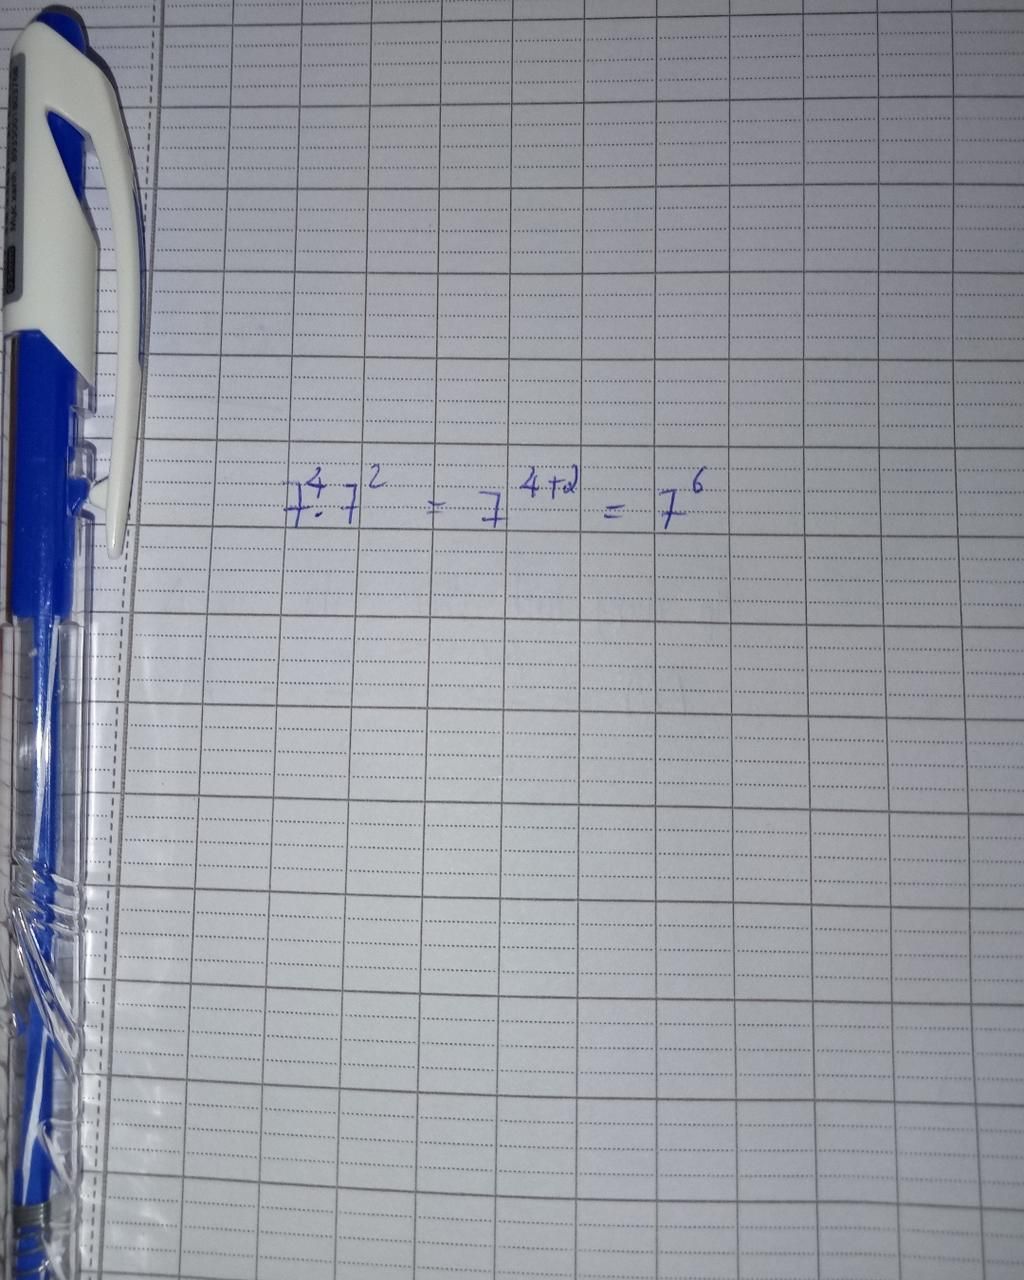 7⁴. 7² = 7⁴⁺² = 7⁶